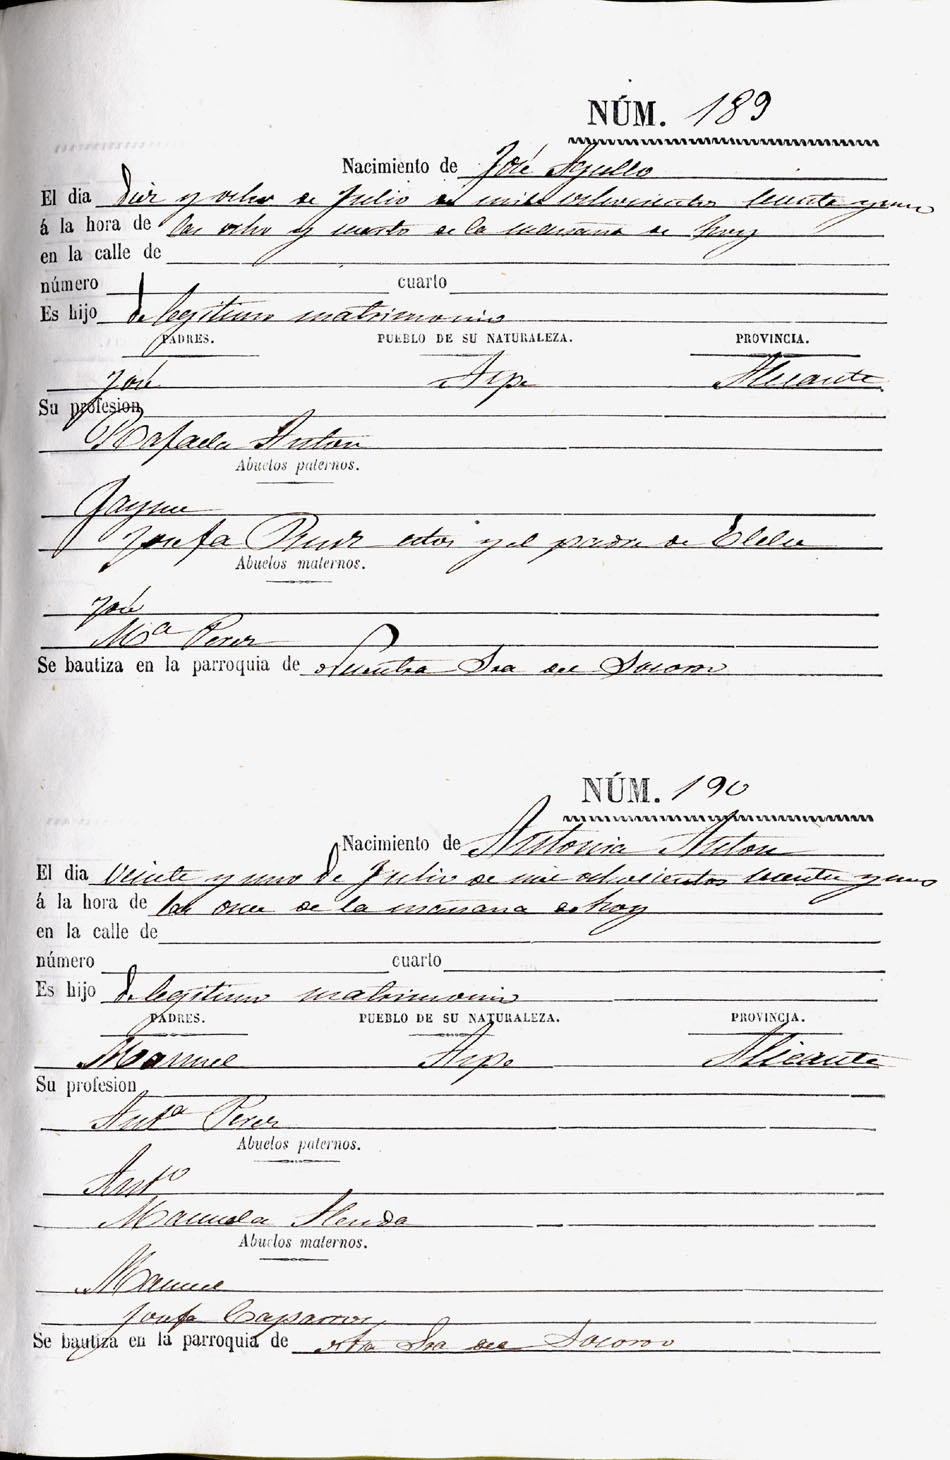 NÚM. 189
Nacimiento de José Agullo
El dia diez y ocho de Julio de mil ochocientos sesenta y uno
á la hora de las ocho y cuarto de la mañana de hoy
en la calle de
número cuarto
Es hijo de legitimo matrimonio
PADRES. PUEBLO DE SU NATURALEZA. PROVINCIA.
José Aspe Alicante
Su profesion
Rafaela Anton
Abuelos paternos.
Jayme
Josefa Ruiz estos y el padre de Elche
Abuelos maternos.
José
Mª Perez
Se bautiza en la parroquia de Nuestra Sra del Socorro
NÚM. 190
Nacimiento de Antonia Anton
El dia veinte y uno de Julio de mil ochocientos sesenta y uno
á la hora de las once de la mañana de hoy
en la calle de
número cuarto
Es hijo de legitimo matrimonio
PADRES. PUEBLO DE SU NATURALEZA. PROVINCIA.
Manuel Aspe Alicante
Su profesion
Antª Perez
Abuelos paternos.
Antº
Manuela
Abuelos maternos.
Manuel
Josefa Caparros
Se bautiza en la parroquia de Ntra Sra del Socorro